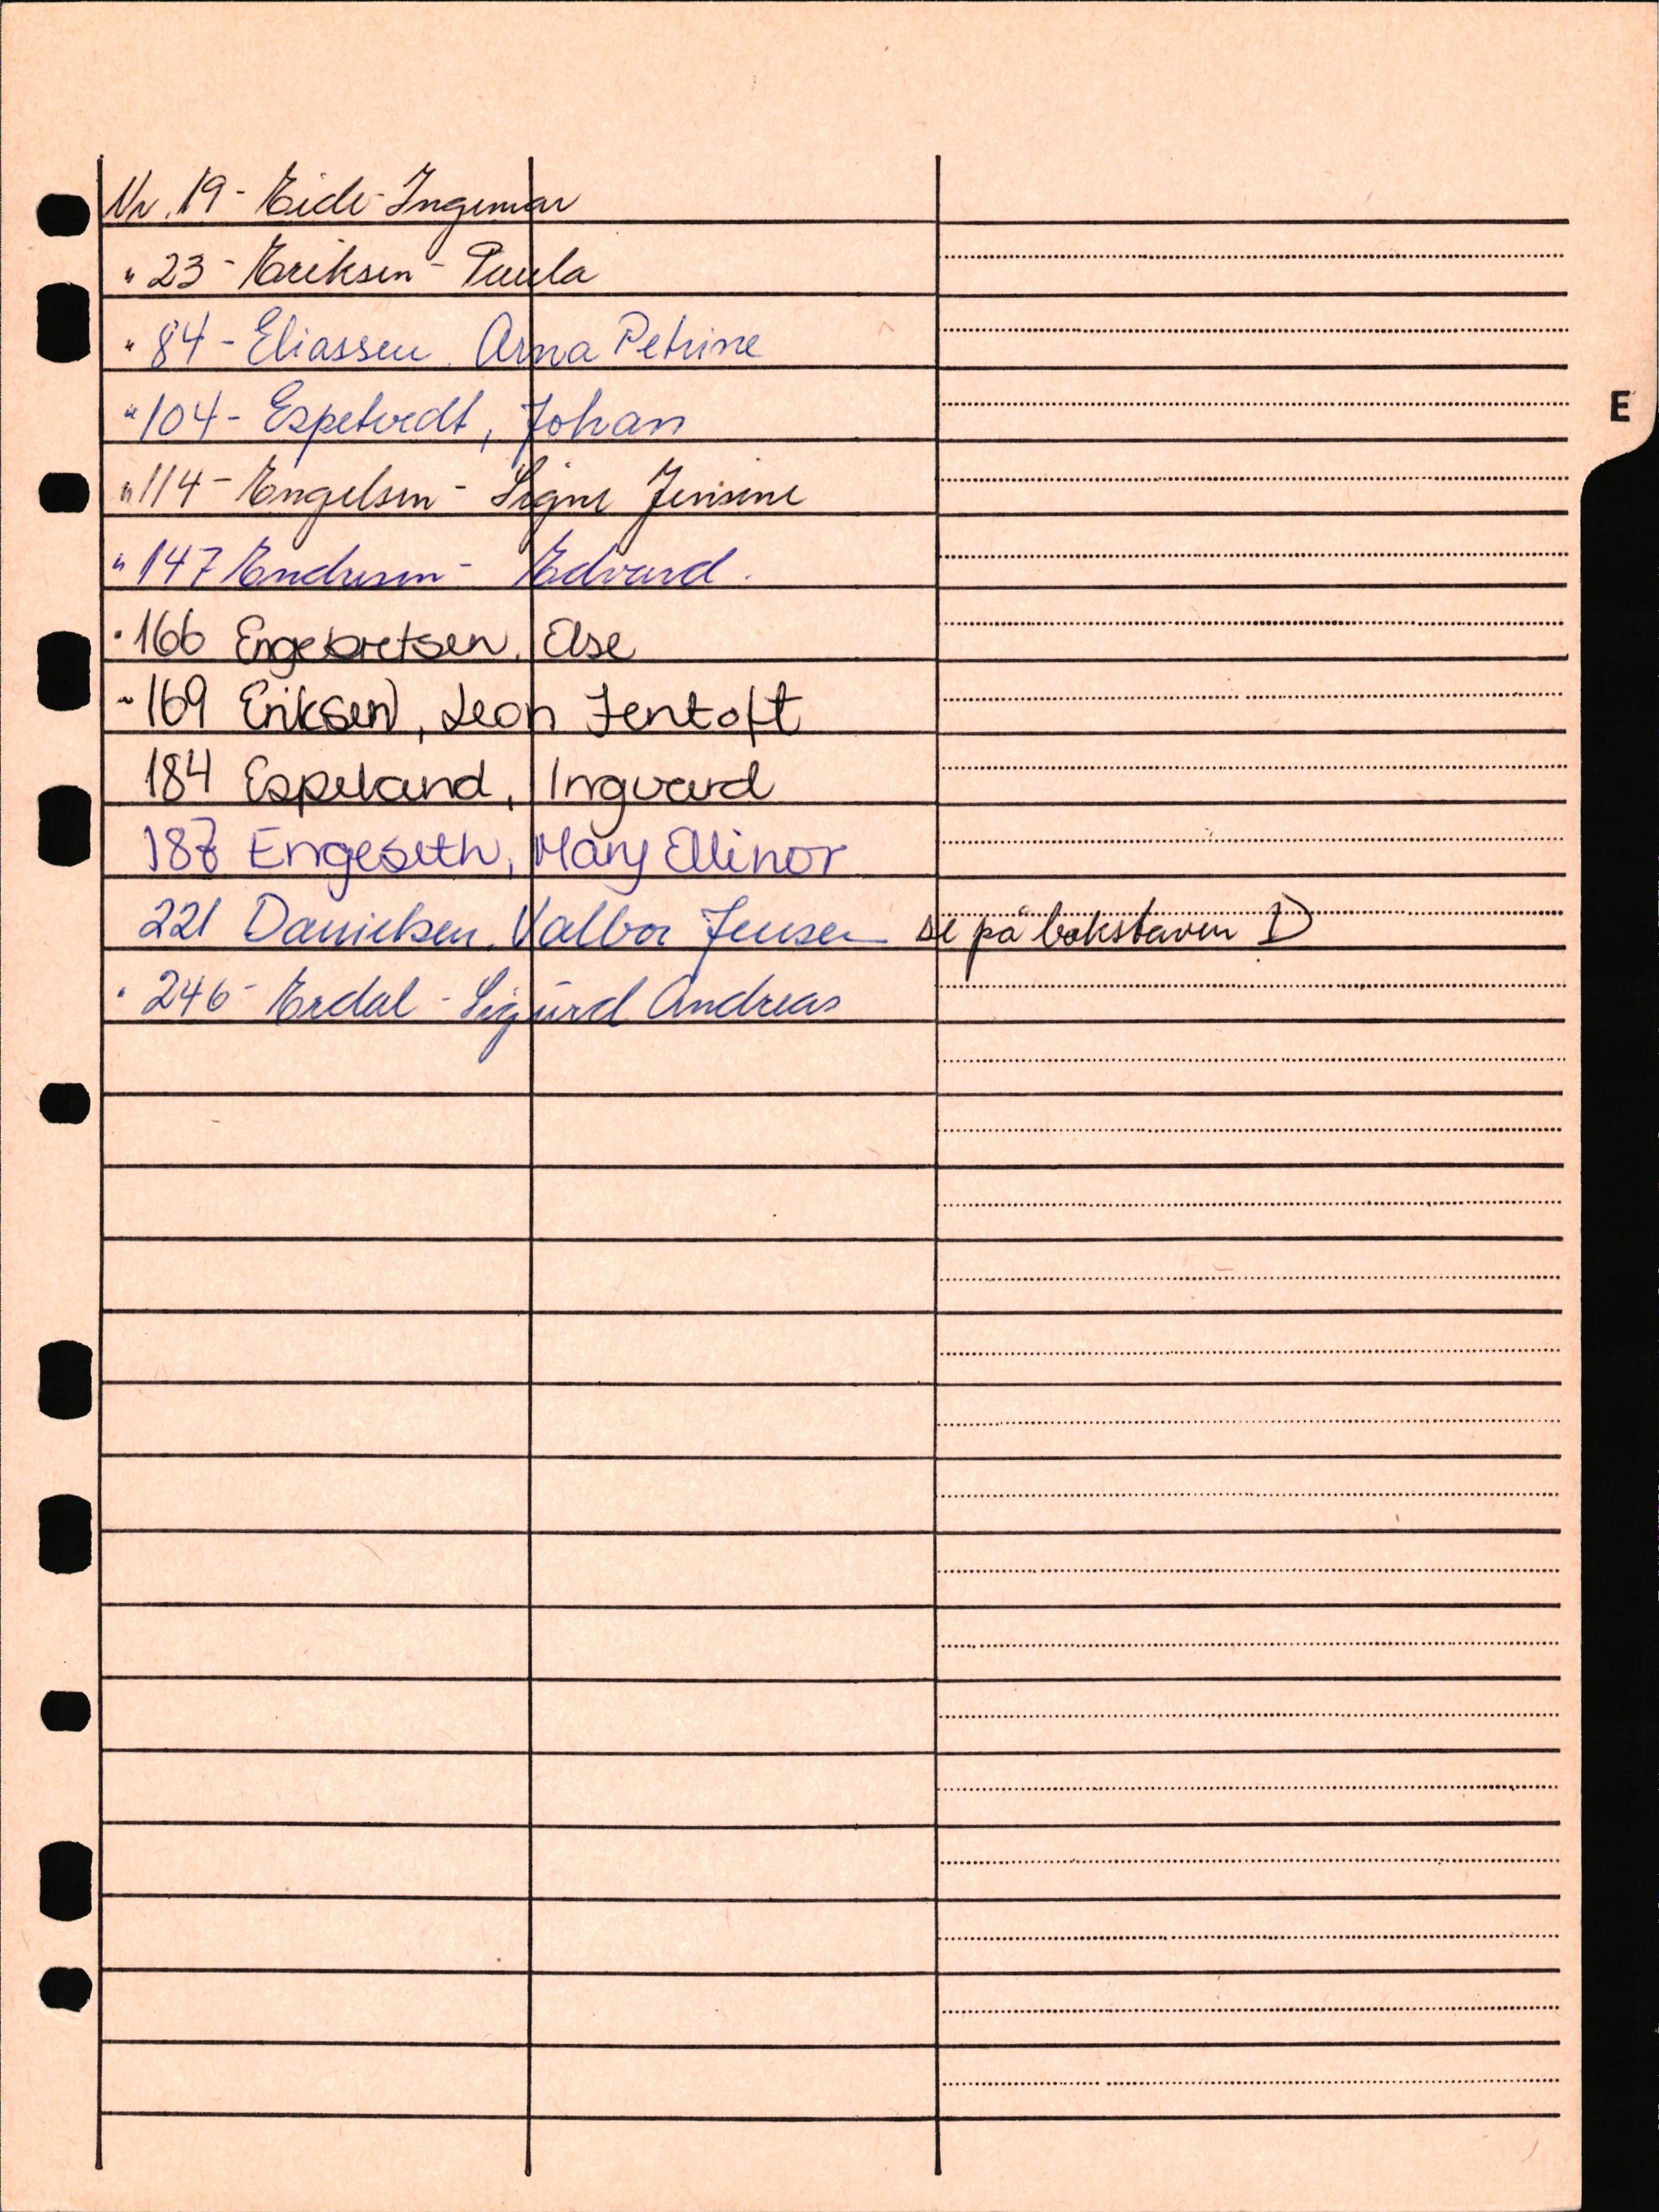 Nr. 19 - Eide - Ingemar
" 23 - Eriksen - Paula
" 84 - Eliassen. Arna Petrine
" 104 - Espetvedt, Johan
" 114 - Engelsen - Signe Jensine
" 147 Endresen - Edvard.
" 166 Engebretsen, Else
" 169 Eriksen, Leon Jentoft
184 Espeland, Ingvard
187 Engeseth, Mary Ellinor
221 Danielsen. Valbor Jensen se på bokstaven D
" 246 - Erdal - Sigurd Andreas
E